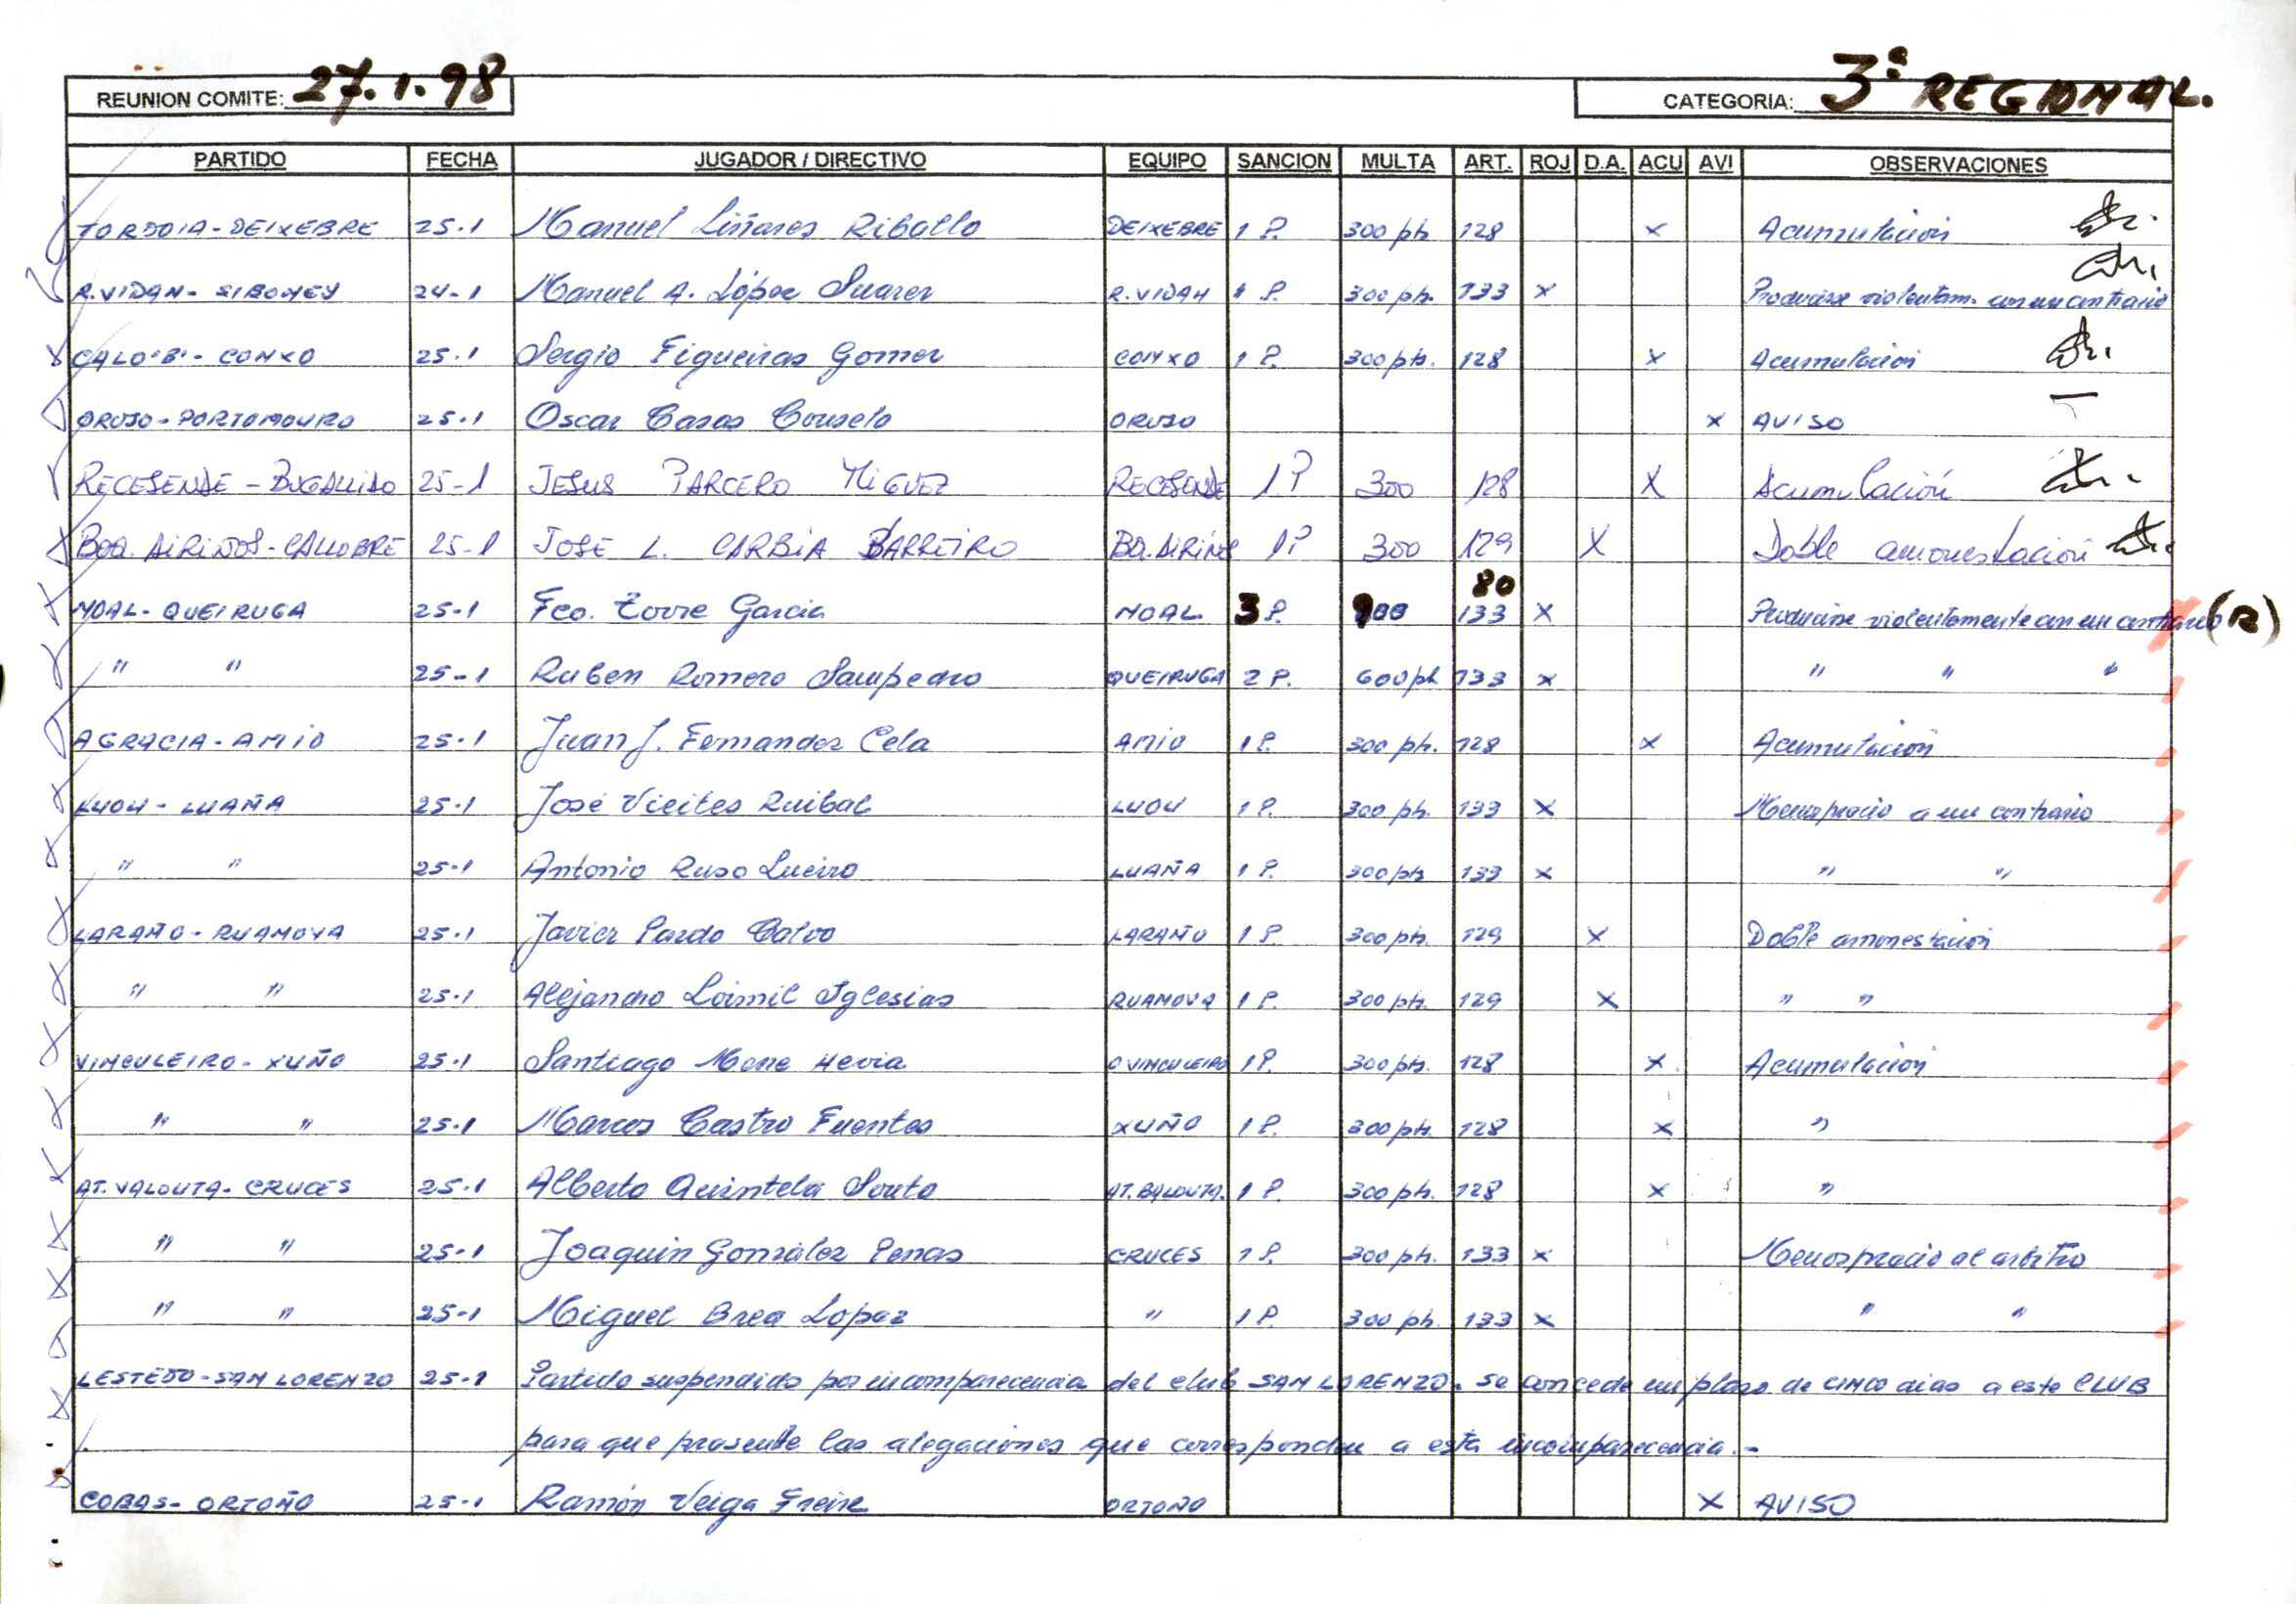 REUNION COMITE: 27.1.98 CATEGORIA: 3ª REGIONAL.
PARTIDO FECHA JUGADOR / DIRECTIVO EQUIPO SANCION MULTA ART. ROJ D.A. ACU AVI OBSERVACIONES
TORDOIA - DEIXEBRE 25-1 Manuel Liñares Ribollo DEIXEBRE 1 P. 300 pts 128 x Acumulación
R. VIDAN - SIBONEY 24-1 Manuel A. López Suarez R. VIDAN 1 P. 300 pts. 133 x Producirse violentam. con un contrario
CALO "B" - CONXO 25-1 Sergio Figueiras Gomez CONXO 1 P. 300 pts. 128 x Acumulación
OROSO - PORTOMOURO 25-1 Oscar Casas Couselo OROSO x AVISO
RECESENDE - BUGALLIDO 25-1 JESUS PARCERO MIGUEZ RECESENDE 1 P 300 128 X Acumulación
BOA. AIRIÑOS - CALLOBRE 25-1 JOSE L. CARBIA BARREIRO BO. AIRIÑOS 1P 300 129 X Doble amonestación
80
NOAL - QUEIRUGA 25-1 Fco. Torre Garcia NOAL 3 P. 900 133 x Producirse violentamente con un contrario (R)
" " 25-1 Ruben Romero Sampedro QUEIRUGA 2 P. 600 pts 133 x " " "
AGRACIA - AMIO 25-1 Juan J. Fernandez Cela AMIO 1 P. 300 pts. 128 x Acumulación
LUOU - LUAÑA 25-1 José Vieites Ruibal LUOU 1 P. 300 pts. 133 x Menosprecio a un contrario
" " 25-1 Antonio Ruso Lueiro LUAÑA 1 P. 300 pts 133 x " "
LARAÑO - RUANOVA 25-1 Javier Pardo Calvo LARAÑO 1 P. 300 pts. 129 x Doble amonestación
" " 25-1 Alejandro Loimil Iglesias RUANOVA 1 P. 300 pts. 129 x " "
VINCULEIRO - XUÑO 25-1 Santiago Mene Hevia O VINCULEIRO 1 P. 300 pts. 128 x Acumulación
" " 25-1 Marcos Castro Fuentes XUÑO 1 P. 300 pts. 128 x "
AT. VALOUTA - CRUCES 25-1 Alberto Quintela Souto AT. BALOUTA. 1 P. 300 pts. 128 x "
" " 25-1 Joaquin González Penas CRUCES 1 P. 300 pts. 133 x Menosprecio al arbitro
" " 25-1 Miguel Brea Lopez " 1 P. 300 pts. 133 x " "
LESTEDO - SAN LORENZO 25-1 Partido suspendido por incomparecencia del club SAN LORENZO. Se concede un plazo de CINCO dias a este CLUB
para que presente las alegaciones que correspondan a esta incomparecencia.-
COBAS - ORTOÑO 25-1 Ramón Veiga Freire ORTOÑO X AVISO